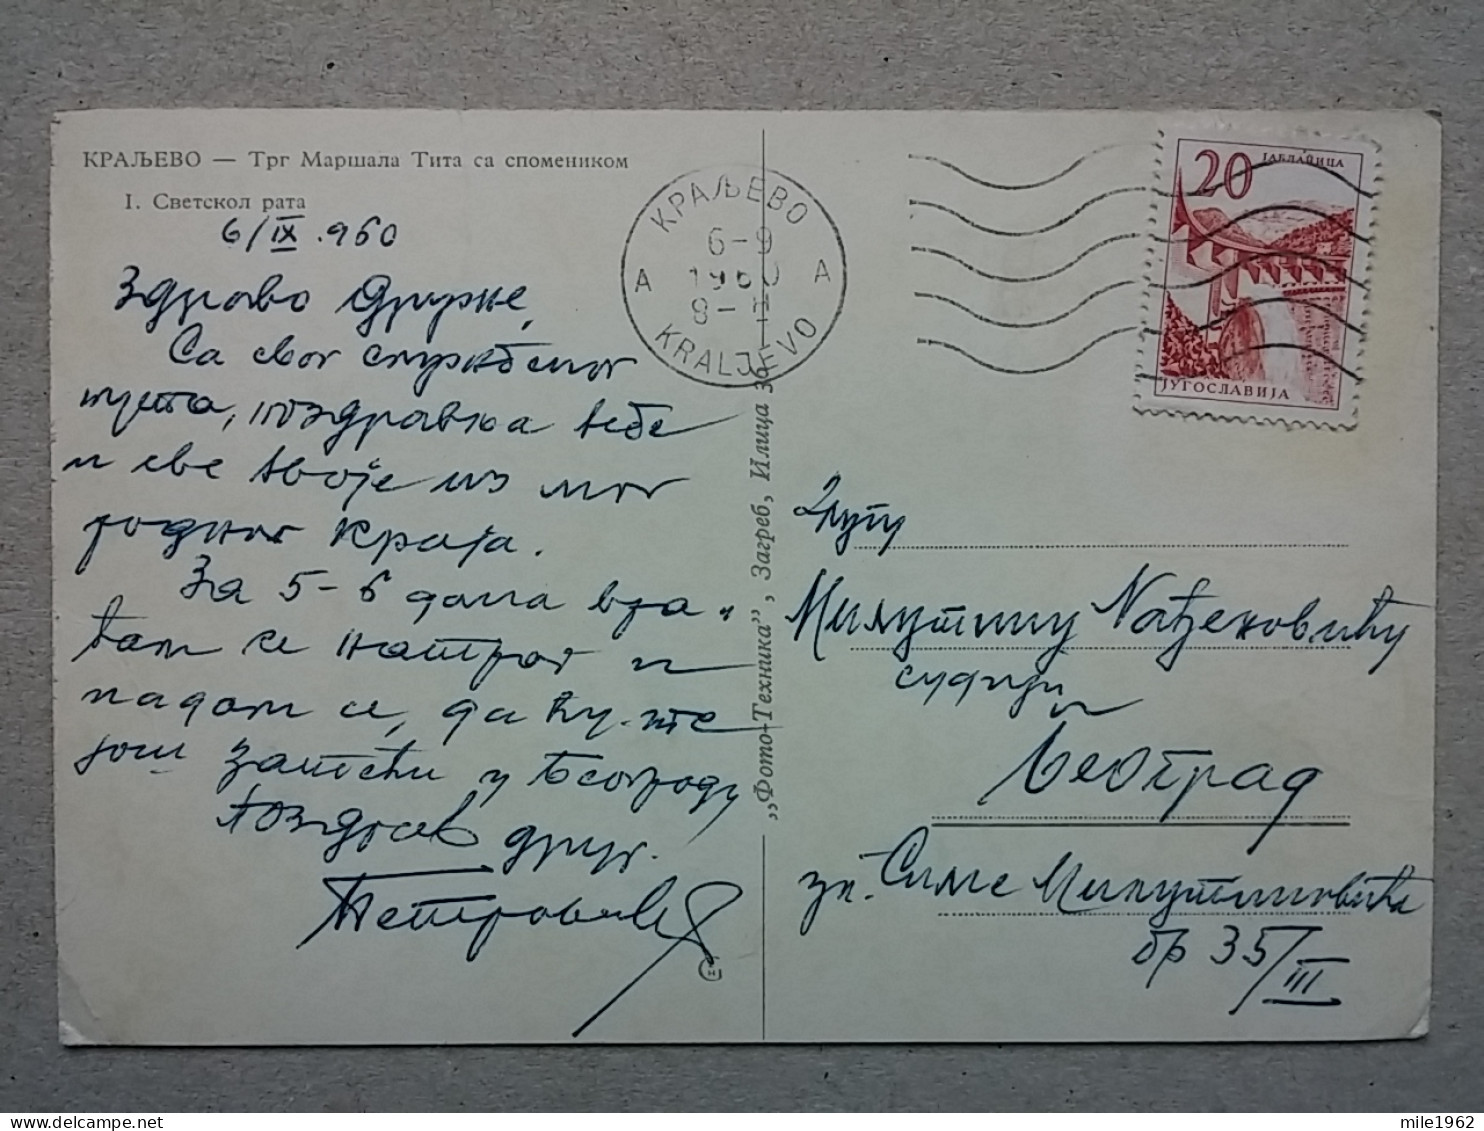 КРАЉЕВО — Трг Маршала Тита са спомеником
I. Светскол рата
6/IX .960
Здраво Друже,
Са свог службеног
пута, поздравља тебе
и све твоје из мог
родног краја.
За 5-6 дана вра-
ћам се натраг и
надам се, да ћу те
још затећи у Београду
Поздрав друг.
Петровић
КРАЉЕВО
6-9
1960
8-11
A A
KRALJEVO
„Фото-Техника", Загреб, Илица 36
20
ЈАБЛАНИЦА
ЈУГОСЛАВИЈА
Другу
Милутину
судији
Београд
ул. Симе Милутиновића
бр 35/III
mile1962